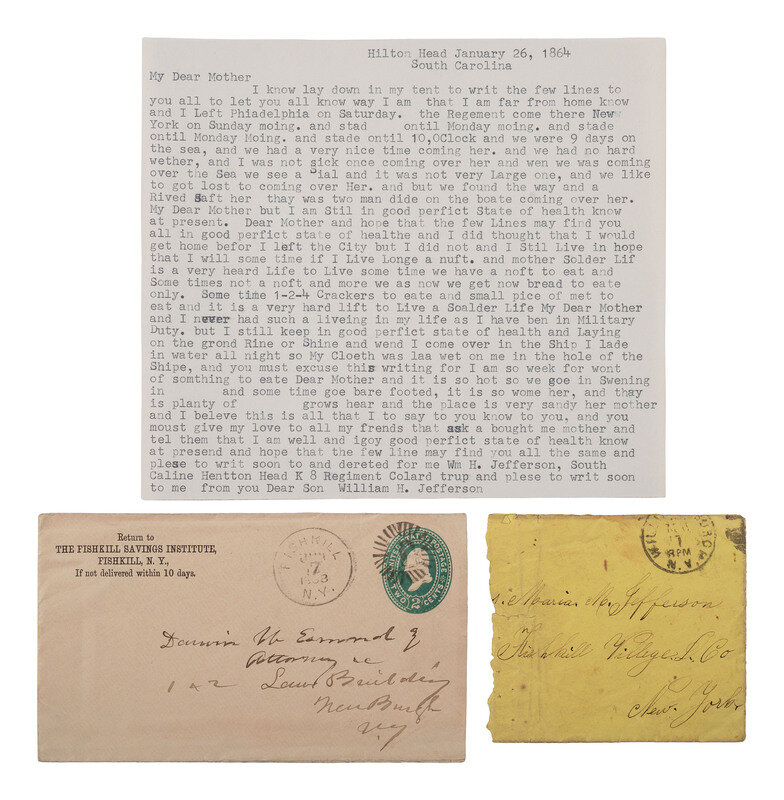 Hilton Head January 26, 1864
South Carolina
My Dear Mother
I know lay down in my tent to writ the few lines to
you all to let you all know way I am that I am far from home know
and I Left Phiadelphia on Saturday. the Regement come there New
York on Sunday moing. and stad ontil Monday moing. and stade
ontil Monday Moing. and stade ontil 10,OClock and we were 9 days on
the sea, and we had a very nice time coming her. and we had no hard
wether, and I was not sick once coming over her and wen we was coming
over the Sea we see a Sial and it was not very Large one, and we like
to got lost to coming over Her. and but we found the way and a
Rived Saft her thay was two man dide on the boate coming over her.
My Dear Mother but I am Stil in good perfict State of health know
at present. Dear Mother and hope that the few Lines may find you
all in good perfict state of healthe and I did thought that I would
get home befor I left the City but I did not and I Stil Live in hope
that I will some time if I Live Longe a nuft. and mother Solder Lif
is a very heard Life to Live some time we have a noft to eat and
Some times not a noft and more we as now we get now bread to eate
only. Some time 1-2-4 Crackers to eate and small pice of met to
eat and it is a very hard lift to Live a Soalder Life My Dear Mother
and I never had such a liveing in my life as I have ben in Military
Duty. but I still keep in good perfict state of health and Laying
on the grond Rine or Shine and wend I come over in the Ship I lade
in water all night so My Cloeth was laa wet on me in the hole of the
Shipe, and you must excuse this writing for I am so week for wont
of somthing to eate Dear Mother and it is so hot so we goe in Swening
in and some time goe bare footed, it is so wome her, and thay
is planty of grows hear and the place is very sandy her mother
and I beleve this is all that I to say to you know to you. and you
moust give my love to all my frends that ask a bought me mother and
tell them that I am well and igoy good perfict state of health know
at presend and hope that the few line may find you all the same and
plese to writ soon to and dereted for me Wm H. Jefferson, South
Caline Hentton Head K 8 Regiment Colard trup and plese to writ soon
to me from you Dear Son William H. Jefferson
Return to
THE FISHKILL SAVINGS INSTITUTE,
FISHKILL, N. Y.,
If not delivered within 10 days.
FISHKILL
17
N.Y.
UNITED STATES POSTAGE
TWO 2 CENTS
Darwin W Esmond
Attorney &c
1 & 2 Law Building
New Burgh
NY
8 PM
Maria. M. Jefferson
Fishkill Village
New. York.